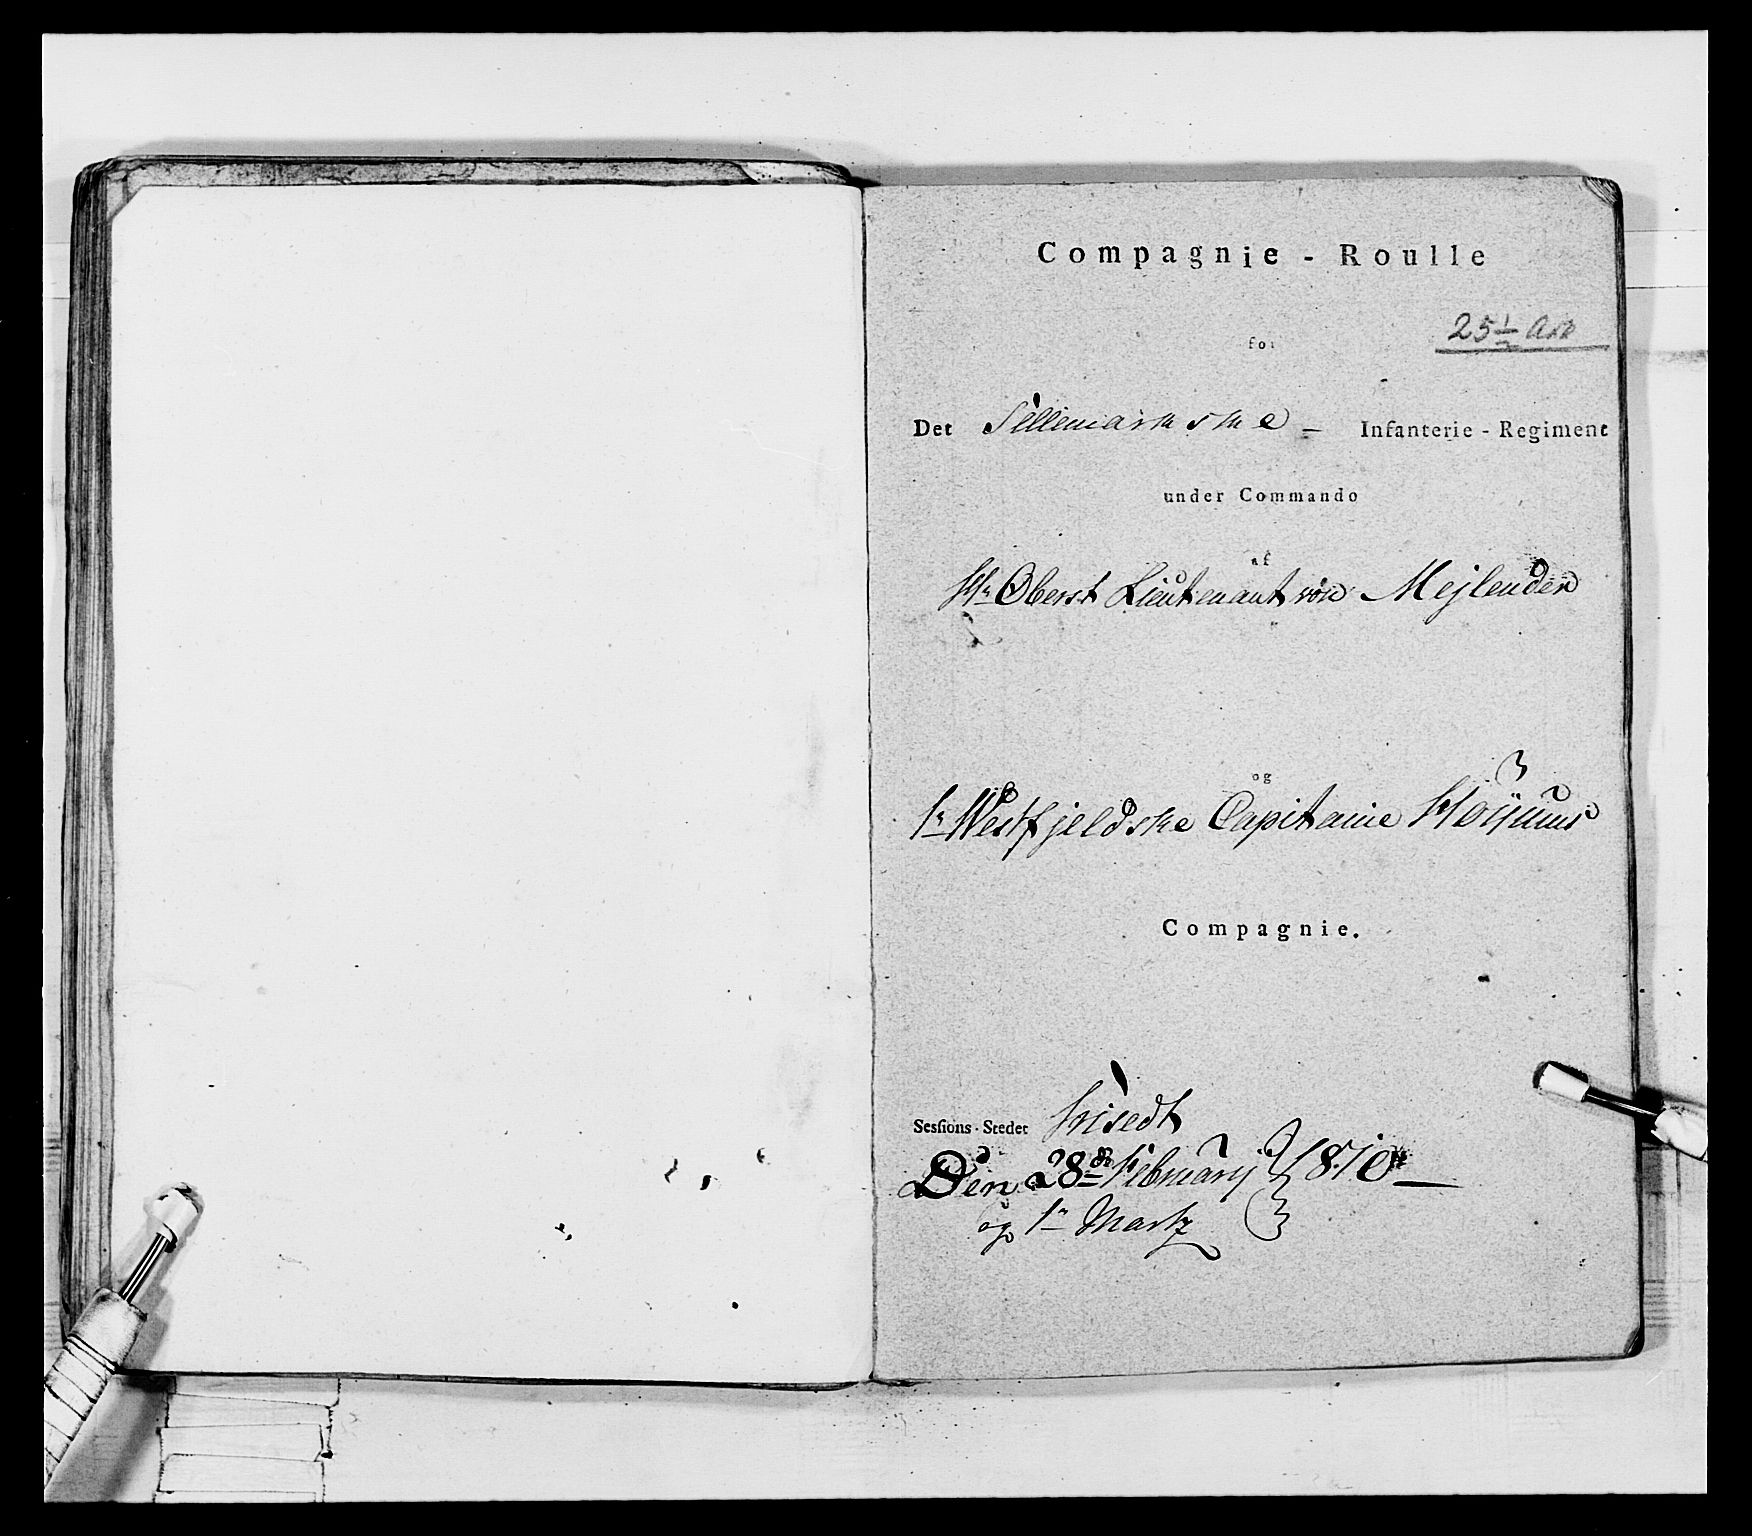 Compagnie - Roulle
25 1/2 Ark
for
Det Tellemarkske - Infanterie - Regiment
under Commando
af
Hr Oberst Lieutenant von Mejlender
og
1te Westfjeldske Capitaine
Compagnie.
Sessions-Stedet
Den 28de February 1810 -
og 1te Martz